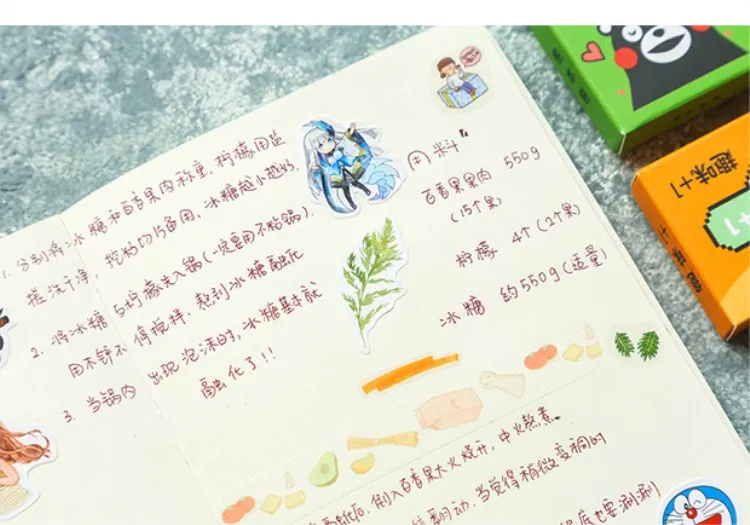 1. 分别将冰糖和百香果肉称重，柠檬用盐
搓洗干净，挖籽切片备用，冰糖越小越好。
2. 将冰糖与柠檬先入锅(一定要用不粘锗).
用不锈不停搅拌，熬到冰糖融化
3. 当锅内出现泡沫时，冰糖基本就
融化了!!
用料
百香果果肉 550g
(15个果)
柠檬 4个(2个果)
冰糖 约550g(适量)
融化后，倒入百香果大火烧开，中火熬煮。
翻动，当觉得稍微变稠的
底也要涮涮
趣味+1
+1